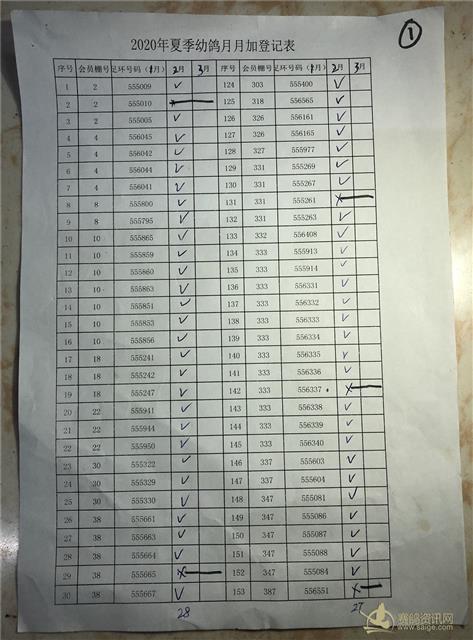 2020年夏季幼鸽月月加登记表
①
序号 会员棚号 足环号码 (1月) 2月 3月 序号 会员棚号 足环号码 (1月) 2月 3月
1 2 555009 ✓ 124 303 555400 ✓
2 2 555010 × 125 318 556565 ✓
3 2 555005 ✓ 126 326 556161 ✓
4 4 556045 ✓ 127 326 556165 ✓
5 4 556042 ✓ 128 327 555977 ✓
6 4 556044 ✓ 129 331 555269 ✓
7 4 556041 ✓ 130 331 555267 ✓
8 8 555800 ✓ 131 331 555261 ×
9 8 555795 ✓ 132 331 555263 ✓
10 10 555865 ✓ 133 332 556408 ✓
11 10 555859 ✓ 134 333 555913 ✓
12 10 555860 ✓ 135 333 555914 ✓
13 10 555863 ✓ 136 333 556331 ✓
14 10 555851 ✓ 137 333 556332 ✓
15 10 555853 ✓ 138 333 556333 ✓
16 10 555856 ✓ 139 333 556334 ✓
17 18 555241 ✓ 140 333 556335 ✓
18 18 555242 ✓ 141 333 556336 ✓
19 18 555247 ✓ 142 333 556337 ×
20 22 555941 ✓ 143 333 556338 ✓
21 22 555944 ✓ 144 333 556339 ✓
22 22 555950 ✓ 145 333 556340 ✓
23 30 555322 ✓ 146 337 555603 ✓
24 30 555329 ✓ 147 337 555604 ✓
25 30 555330 ✓ 148 347 555081 ✓
26 38 555661 ✓ 149 347 555086 ✓
27 38 555663 ✓ 150 347 555087 ✓
28 38 555664 ✓ 151 347 555088 ✓
29 38 555665 × 152 347 555084 ✓
30 38 555667 ✓ 153 387 556551 ×
28 27
赛鸽资讯网
www.saige.com